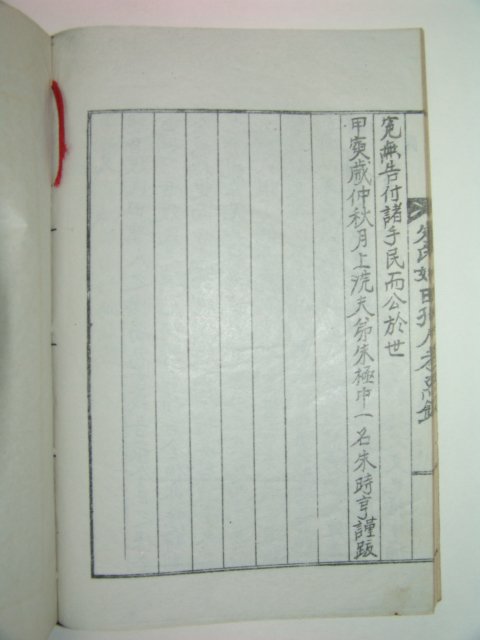 冤無告付諸手民而公於世
甲寅歲仲秋月上浣夫弟朱極中一名朱時亨謹跋